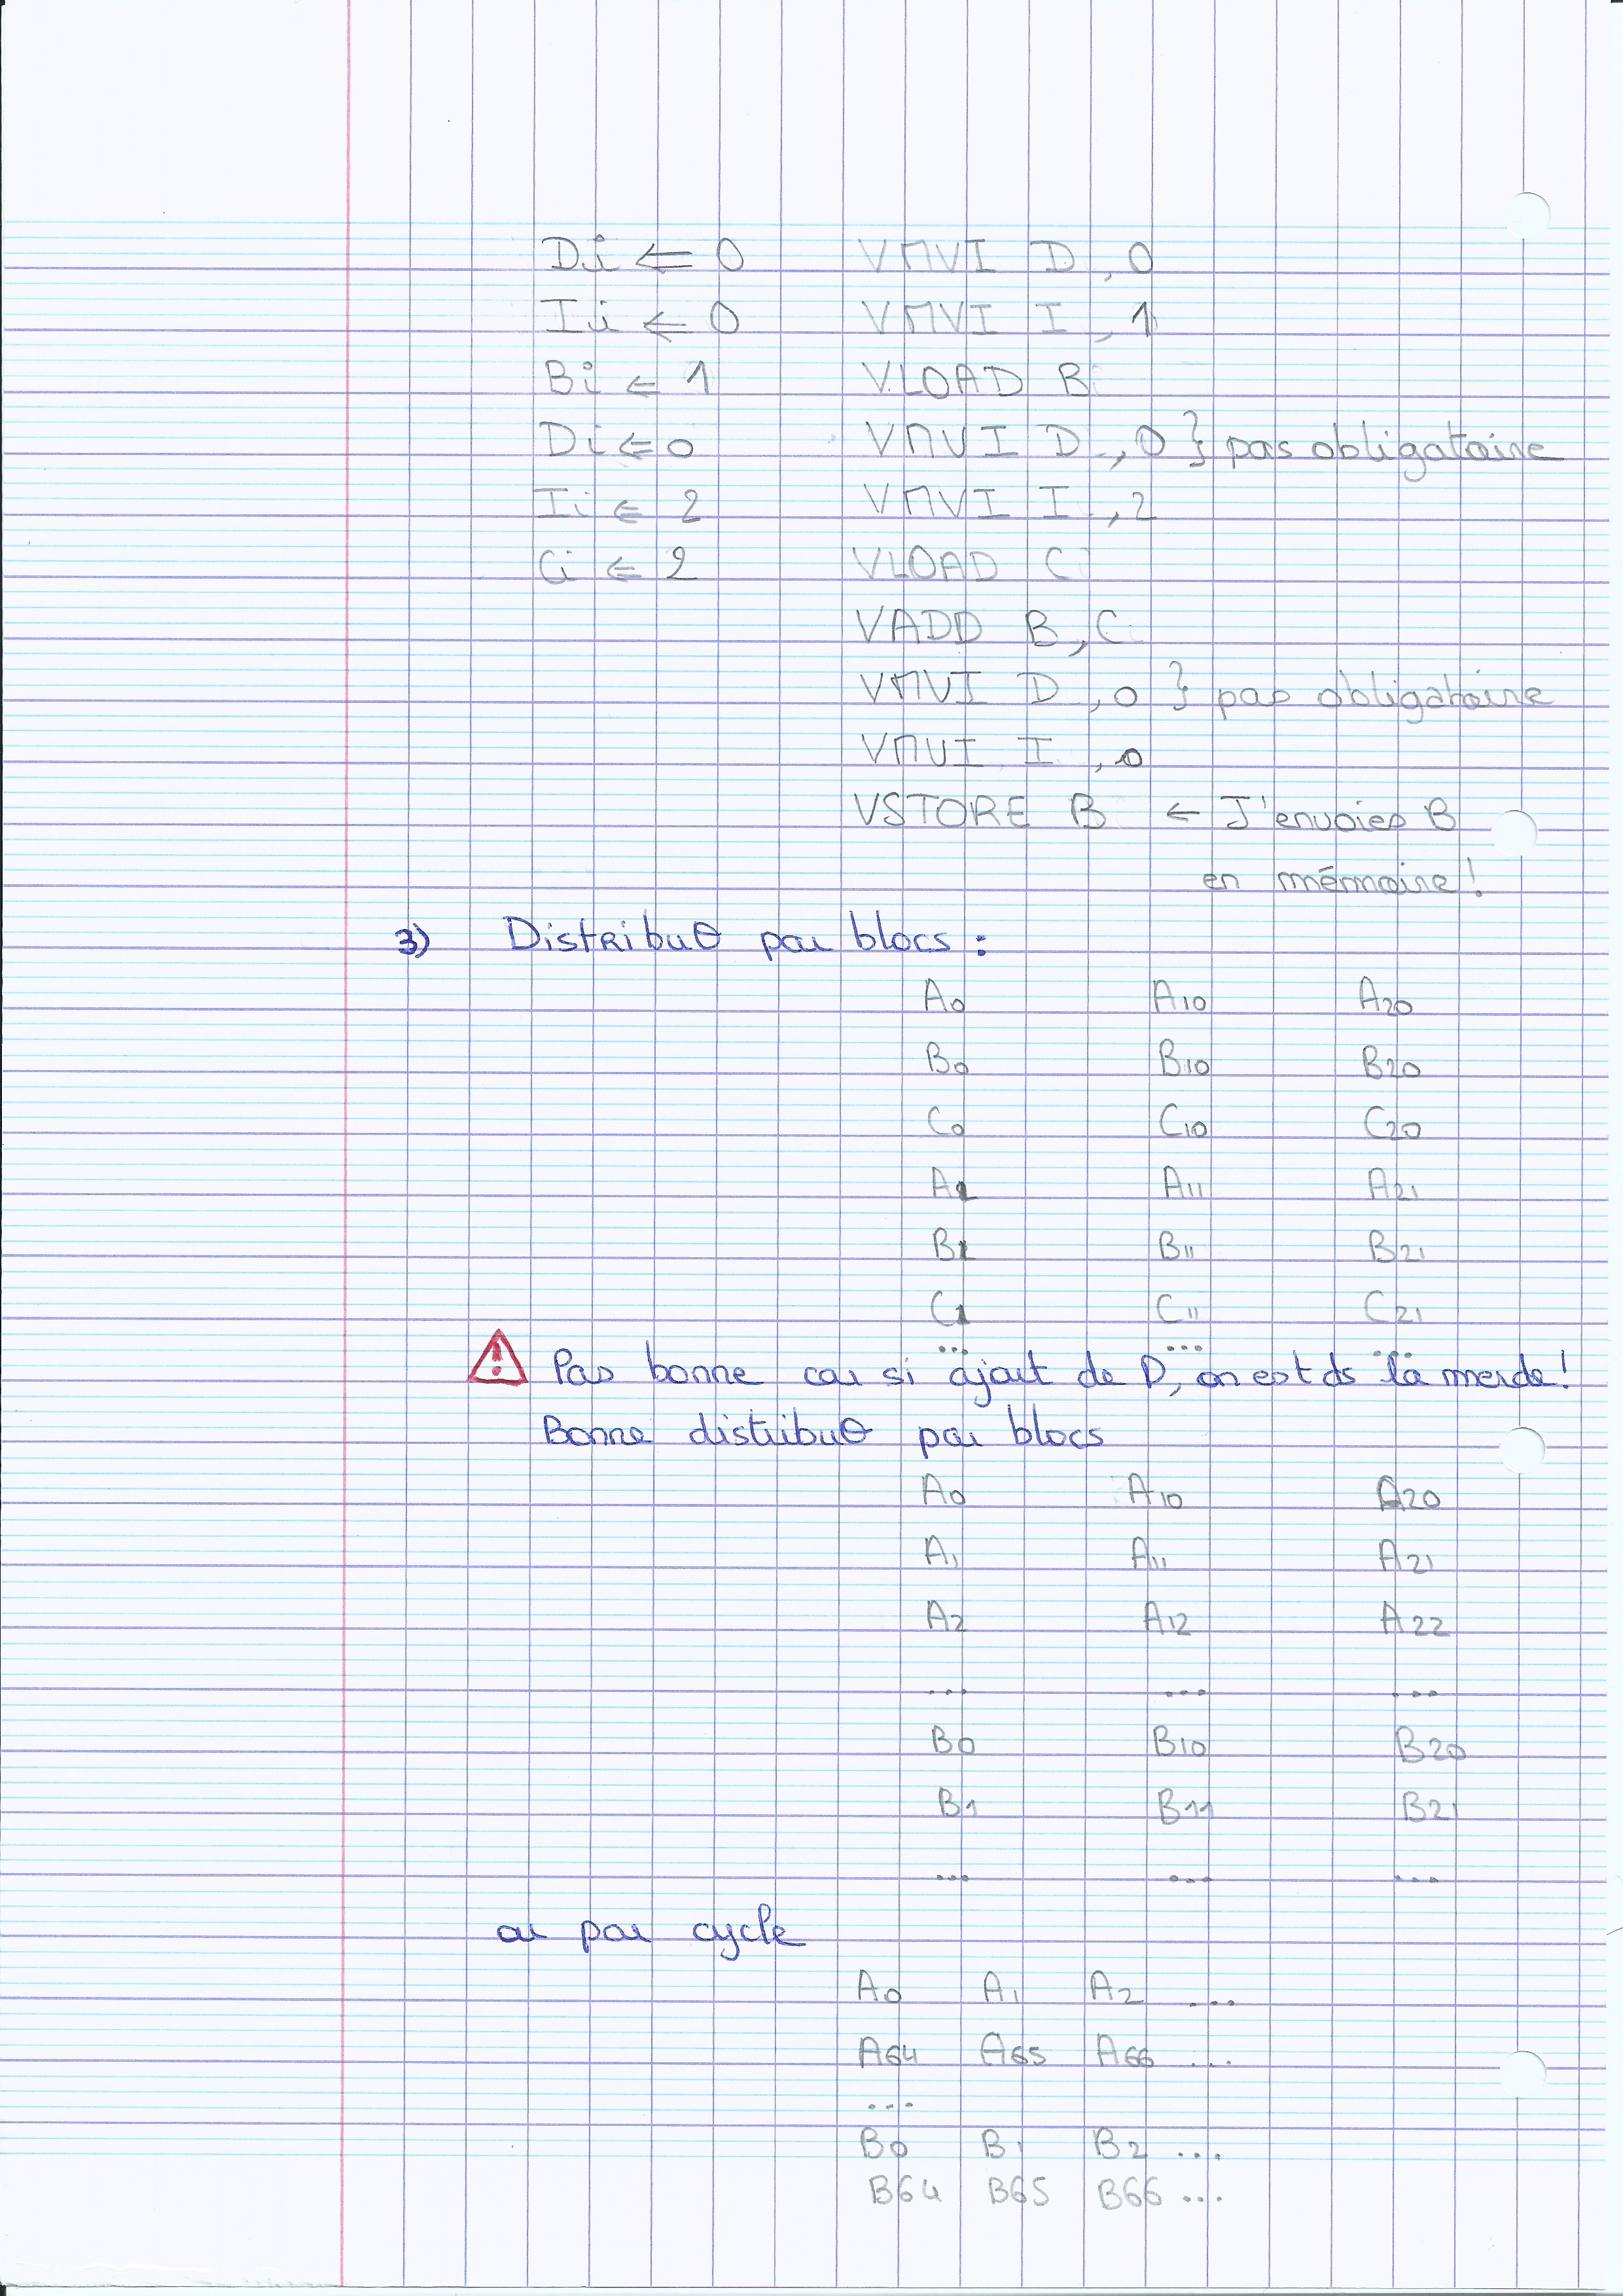 Di ⇐ 0 VMVI D, 0
Ii ⇐ 0 VMVI I, 1
Bi ⇐ 1 VLOAD B
Di ⇐ 0 VMVI D, 0 } pas obligatoire
Ii ⇐ 2 VMVI I, 2
Ci ⇐ 2 VLOAD C
VADD B, C
VMVI D, 0 } pas obligatoire
VMVI I, 0
VSTORE B ← J'envoies B
en mémoire!
3) Distribuθ par blocs :
A0 A10 A20
B0 B10 B20
C0 C10 C20
A1 A11 A21
B1 B11 B21
C1 C11 C21
... ... ...
⚠ Pas bonne car si ajout de D, on est ds la merde!
Bonne distribuθ par blocs
A0 A10 A20
A1 A11 A21
A2 A12 A22
... ... ...
B0 B10 B20
B1 B11 B21
... ... ...
ou par cycle
A0 A1 A2 ...
A64 A65 A66 ...
...
B0 B1 B2 ...
B64 B65 B66 ...